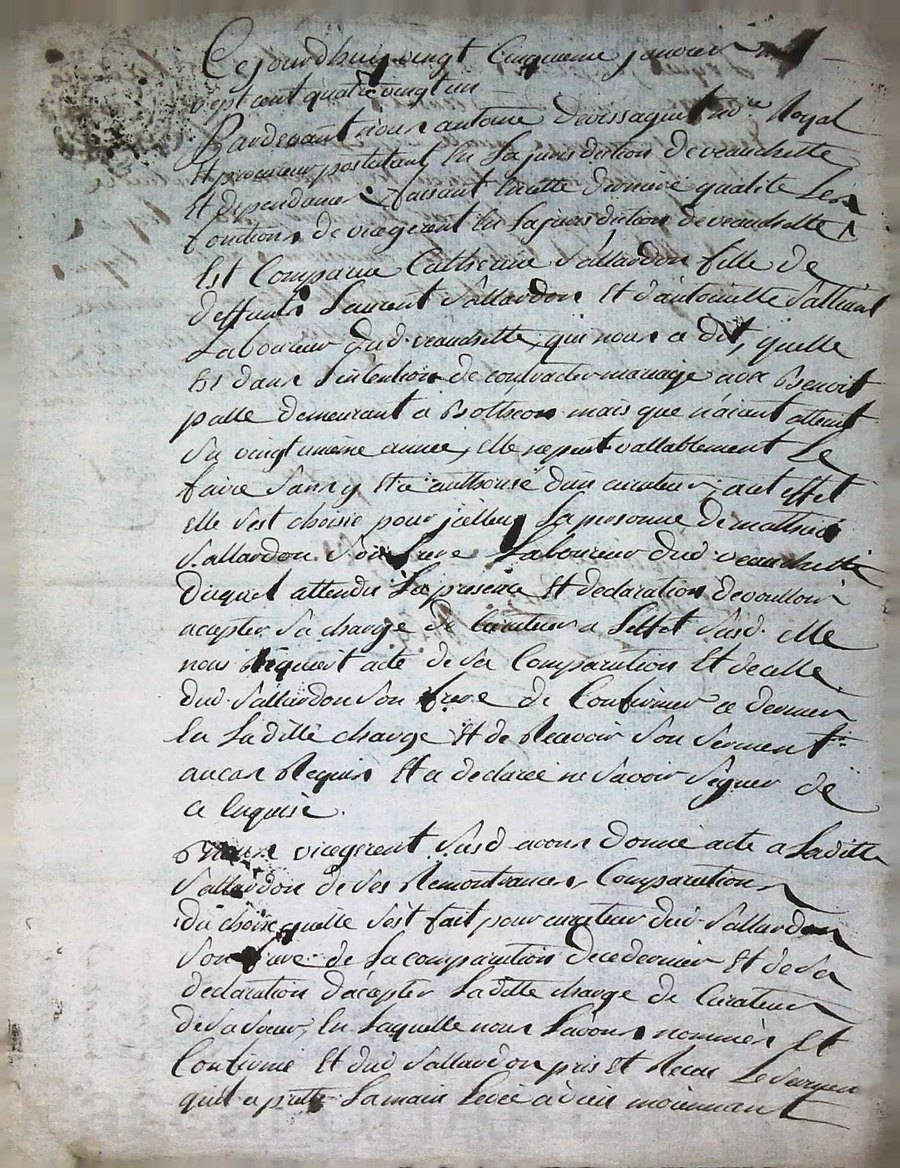 Cejourdhuy vingt Cinquieme janvier mil
sept cent quatre vingt un
Pardevant nous antoine Devissaguet nore Royal
Et procureur postulant En La jurisdiction de veauchette
Et dependances faisant En cette derniere qualité Les
fonctions de vicegerent En La jurisdiction de veauchette
Est Comparue Catherine Sallardon fille de
deffunts Laurent Sallardon Et d'antoinette
Laboureur dud veauchette, qui nous a dit, quelle
Est dans L'intention de contracter mariage avec Benoit
palle demeurant a Botheon mais que n'aiant atteint
Sa vingt unieme année, elle ne peut vallablement Le
faire Sans y Etre authorisé d'un curateur, a cet effet
elle s'est choisie pour icelluy La personne de mathieu
Sallardon Son frere Laboureur dud veauchette
duquel attendu La presence Et declaration de vouloir
acepter La charge de Curateur a L'effet susd. elle
nous Requiert acte de Sa Comparution Et de celle
dud Sallardon Son frere de Confirmer ce dernier
En Laditte charge Et de Recevoir Son Serment
au cas Requis Et a declaree ne Savoir Signer de
ce Enquise.
Nous vicegerent Susd avons Donné acte a Laditte
Sallardon de Ses Remontrances, Comparution
du choix quelle s'est fait pour curateur dud Sallardon
Son frere de La comparution de ce dernier Et de Sa
declaration d'acepter Laditte charge de Curateur
de Sa Sœur, En Laquelle nous L'avons nommé Et
Confirmé Et dud Sallardon pris Et Receu Le Serment
quil a prêté La main Levée a dieu moiennant